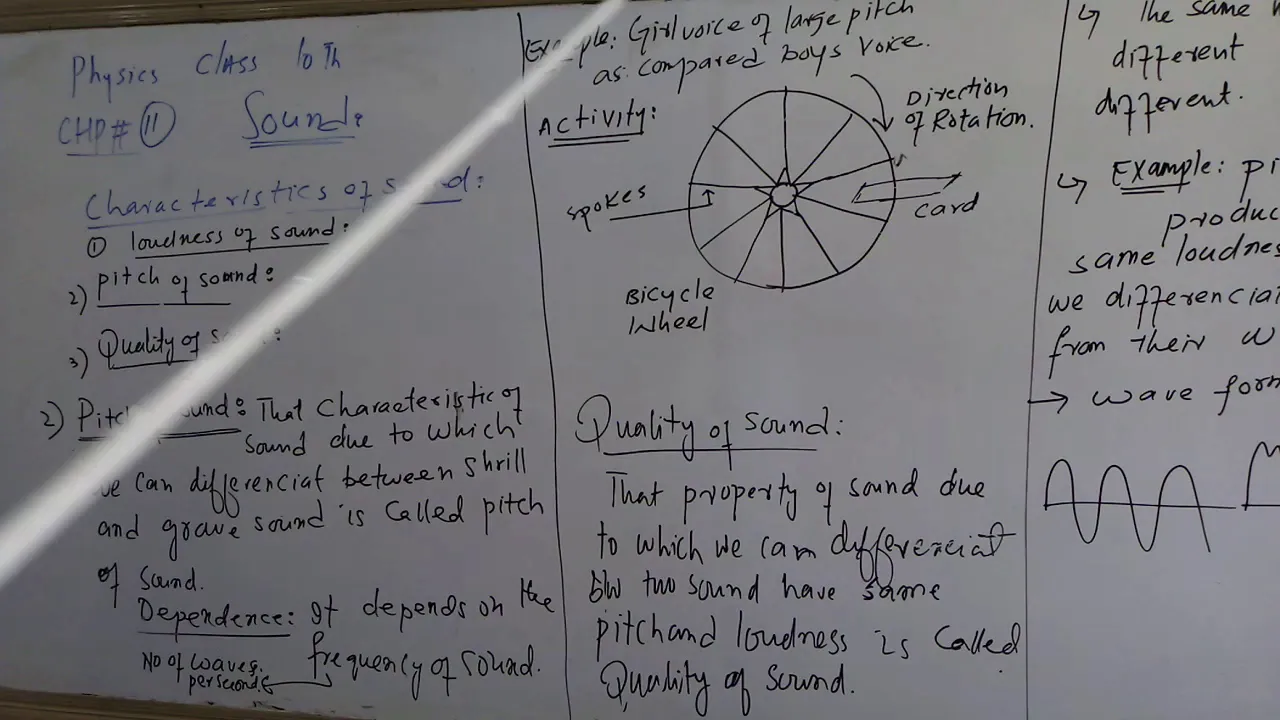 Physics Class 10th
CHP# 11 Sound:
Characteristics of sound:
① loudness of sound:
2) pitch of sound:
3) Quality of
2) Pitch sound: That Characteristic of
sound due to which
we can differenciat between shrill
and grave sound is called pitch
of sound.
Dependence: It depends on the
frequency of sound.
No of waves
per second
Example: Girl voice of large pitch
as compared boys voice.
Activity:
Direction
of Rotation.
spokes
card
Bicycle
Wheel
Quality of sound:
That property of sound due
to which we can differenciat
b/w two sound have same
pitch and loudness is called
Quality of sound.
↳ The same
different
different.
↳ Example:
same
we
from their
→ wave